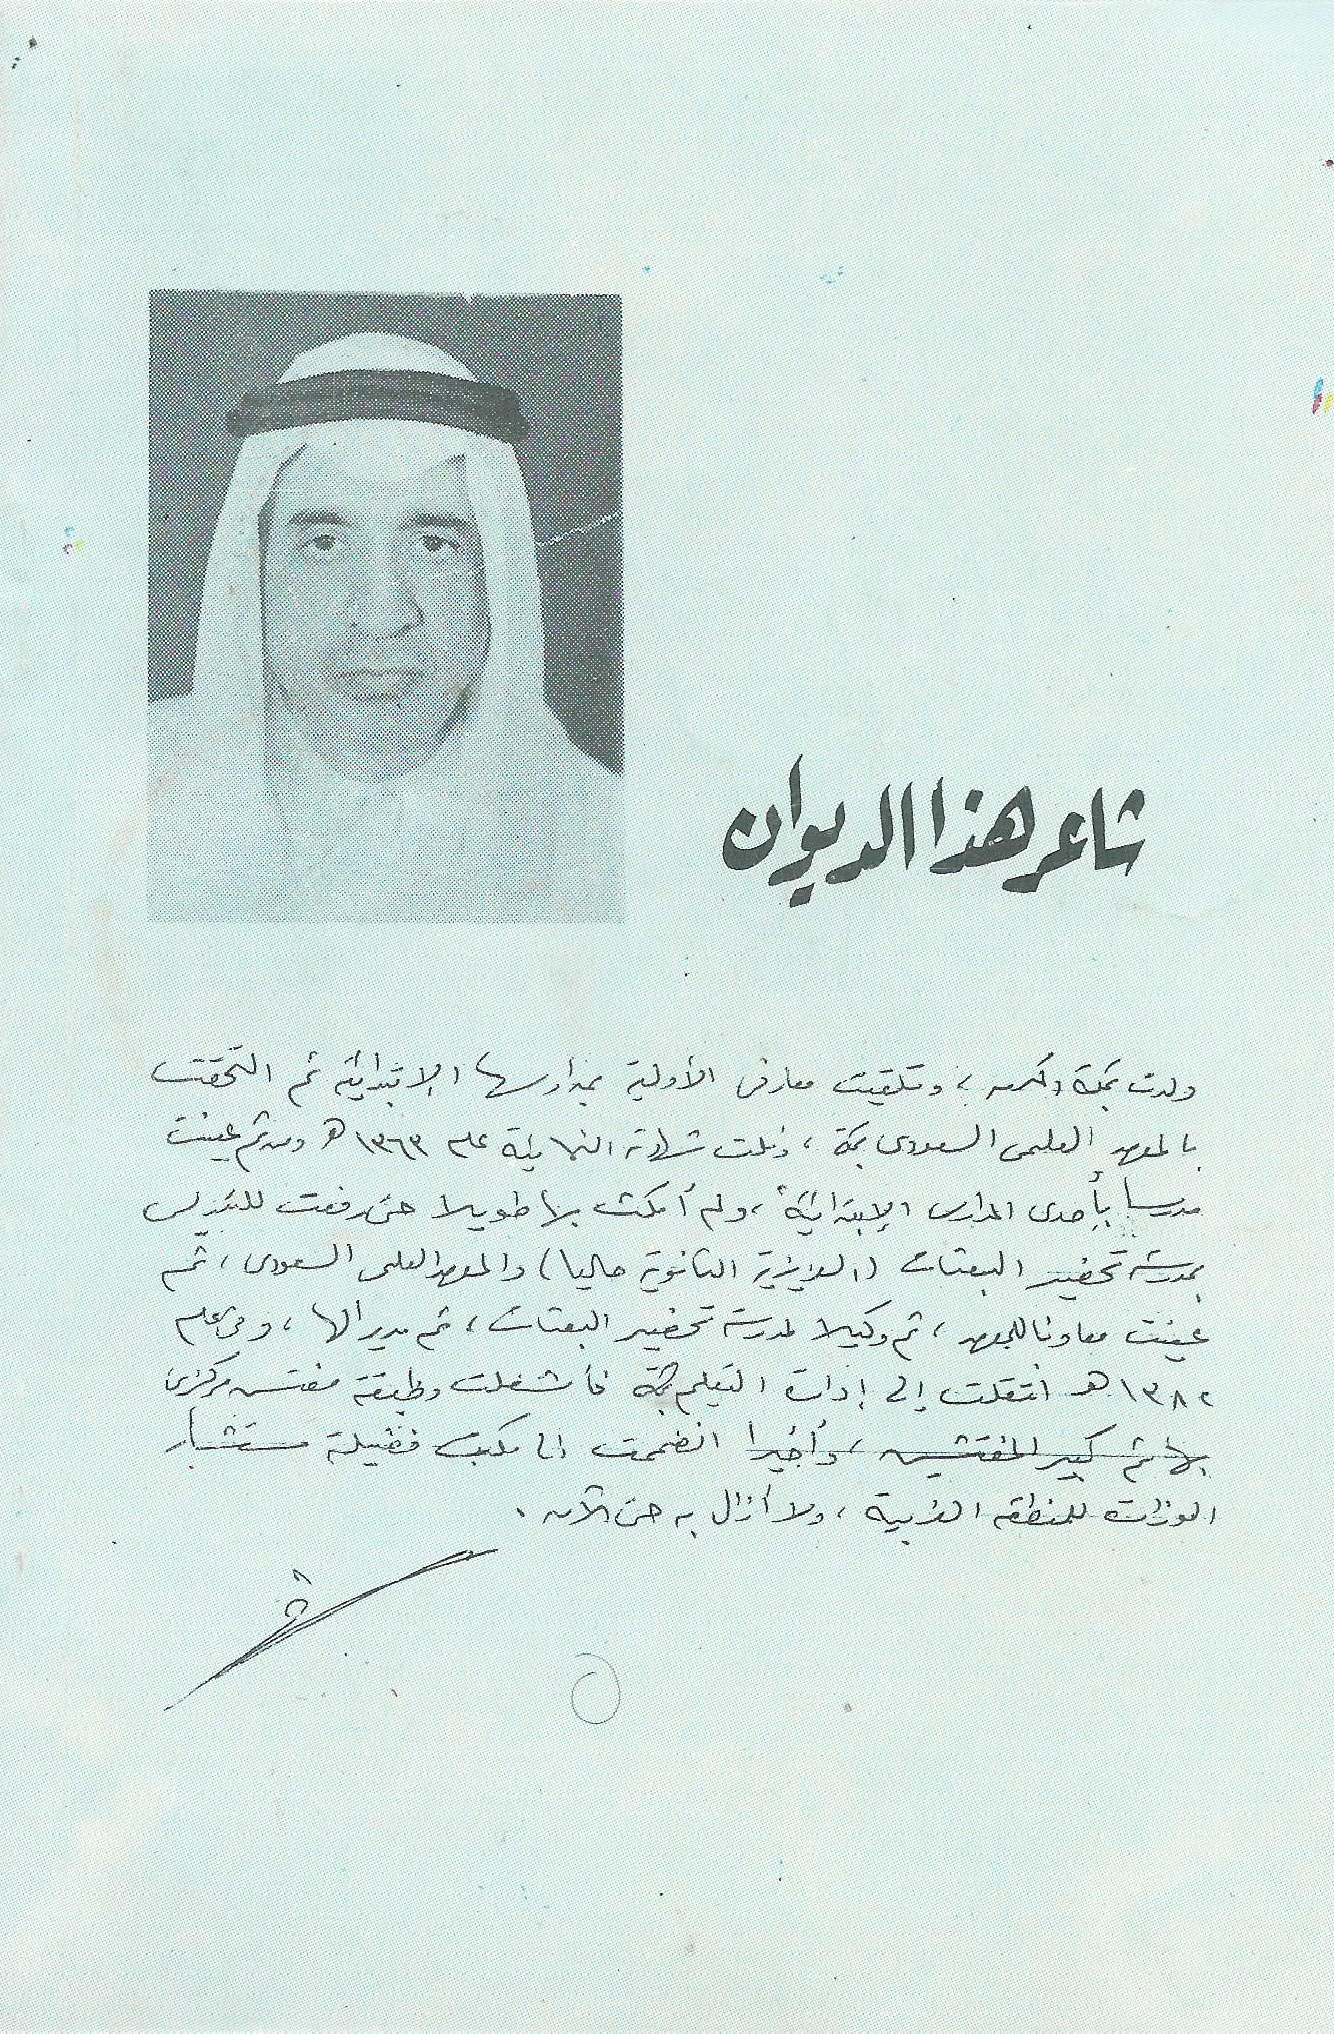 شاعر هذا الديوان
ولدت بمكة المكرمه ، وتلقيت معارفى الأولية بمدارسها الإبتدائية ثم التحقت
بالمعهد العلمى السعودى بمكة ، ونلت شهادته النهائية عام ١٣٦٣ هـ ومن ثم عينت
مدرسا بإحدى المدارس الإبتدائية ، ولم أمكث بها طويلا حتى رفعت للتدريس
بمدرسة تحضير البعثات (العزيزية الثانوية حاليا) والمعهد العلمى السعودى ، ثم
عينت معاونا للمعهد ، ثم وكيلا لمدرسة تحضير البعثات ، ثم مديرا لها ، وفى عام
١٣٨٢ هـ انتقلت إلى إدارة التعليم بمكة فأشغلت وظيفة مفتش مركزى
بها ثم كبير المفتشين ، وأخيرا انضممت الى مكتب فضيلة مستشار
الوزارة للمنطقه الغربية ، ولا أزال به حتى الآن .